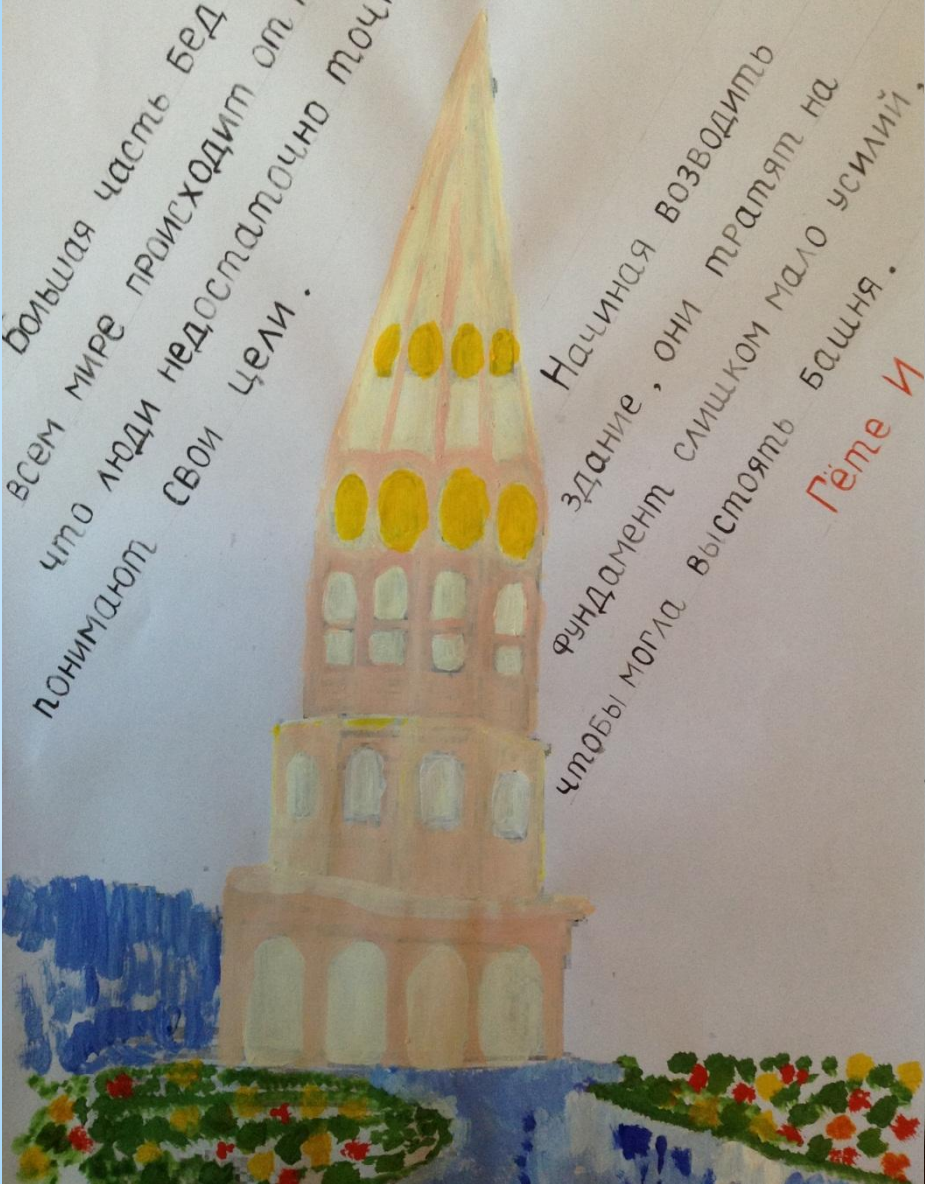 Большая часть бед
всем мире происходит от
что люди недостаточно
понимают свои цели.
Начиная возводить
здание, они тратят на
фундамент слишком мало усилий,
чтобы могла выстоять башня.
Гёте И